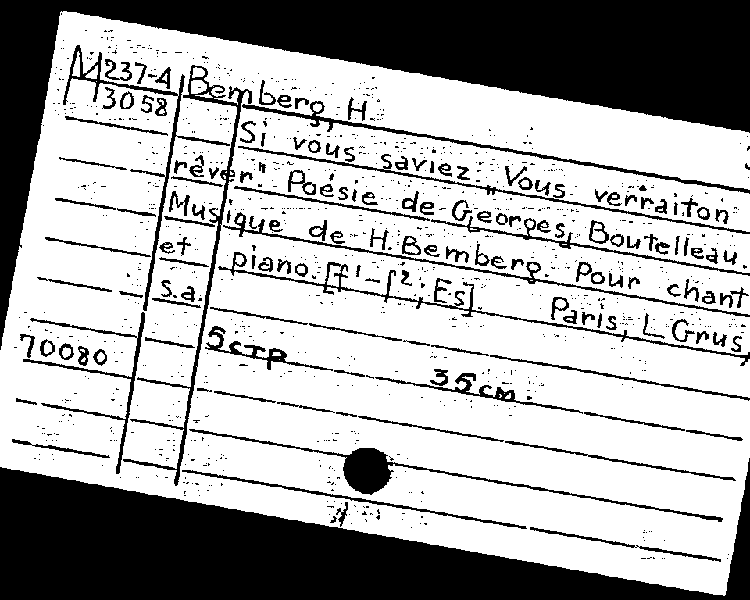 M 237-4 Bemberg, H.
3058
Si vous saviez. „Vous verraiton
rêver." Poésie de [Georges] Boutelleau.
Musique de H. Bemberg. Pour chant
et piano. [f¹-f²; Es]. Paris, L. Grus,
s.a.
70080 5 стр 35 см.